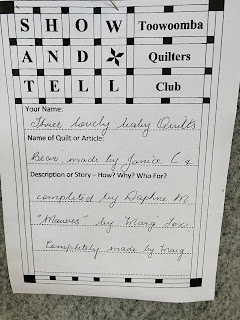 SHOW Toowoomba
AND Quilters
TELL Club
Your Name:
Three lovely baby Quilts
Name of Quilt or Article:
Bear made by Janice C &
Description or Story – How? Why? Who For?
completed by Daphne M.
"Mauves" by Marg Fox
Completely made by Marg